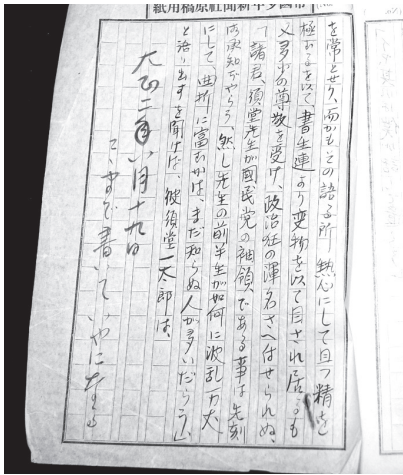 帝國少年新聞社原稿用紙
を常とせり、而かもその語る所 熱心にして且つ精を
極むるを以て書生連より変物を以て目され居るも
又多少の尊敬を受け、政治狂の渾名さへ付せられぬ、
「諸君、須堂先生が國民党の領袖である事は先刻
御承知だらう、然し先生の前半生が如何に波乱万丈
にして曲折に富むかは、まだ知らぬ人が多いだらう」
と語り出すを聞けば、彼須堂一太郎は、
大正二年八月十九日
こゝまで書いていやになる